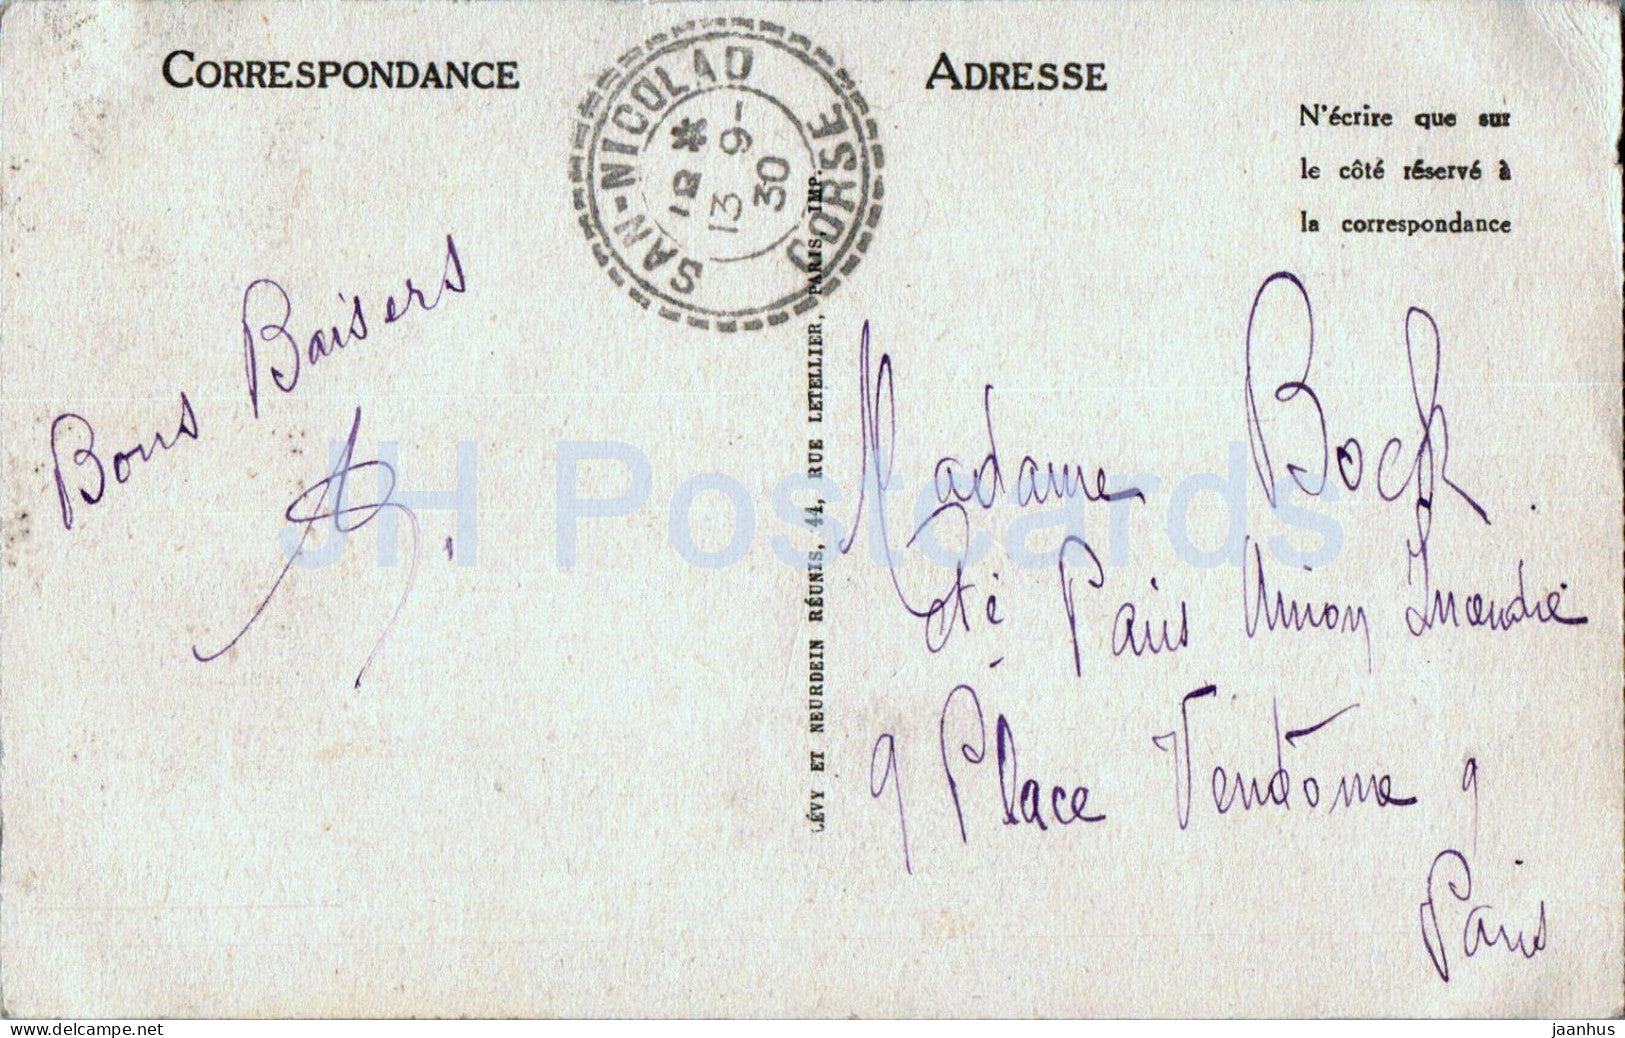 CORRESPONDANCE
ADRESSE
N'écrire que sur
le côté réservé à
la correspondance
SAN-NICOLAO
CORSE
18 *
13 9-
30
Bons Baisers
LÉVY ET NEURDEIN RÉUNIS, 44, RUE LETELLIER, PARIS, IMP.
Madame Bock.
Cté Paris Union Incendie
9 Place Vendôme 9
Paris
JH Postcards
www.delcampe.net
jaanhus